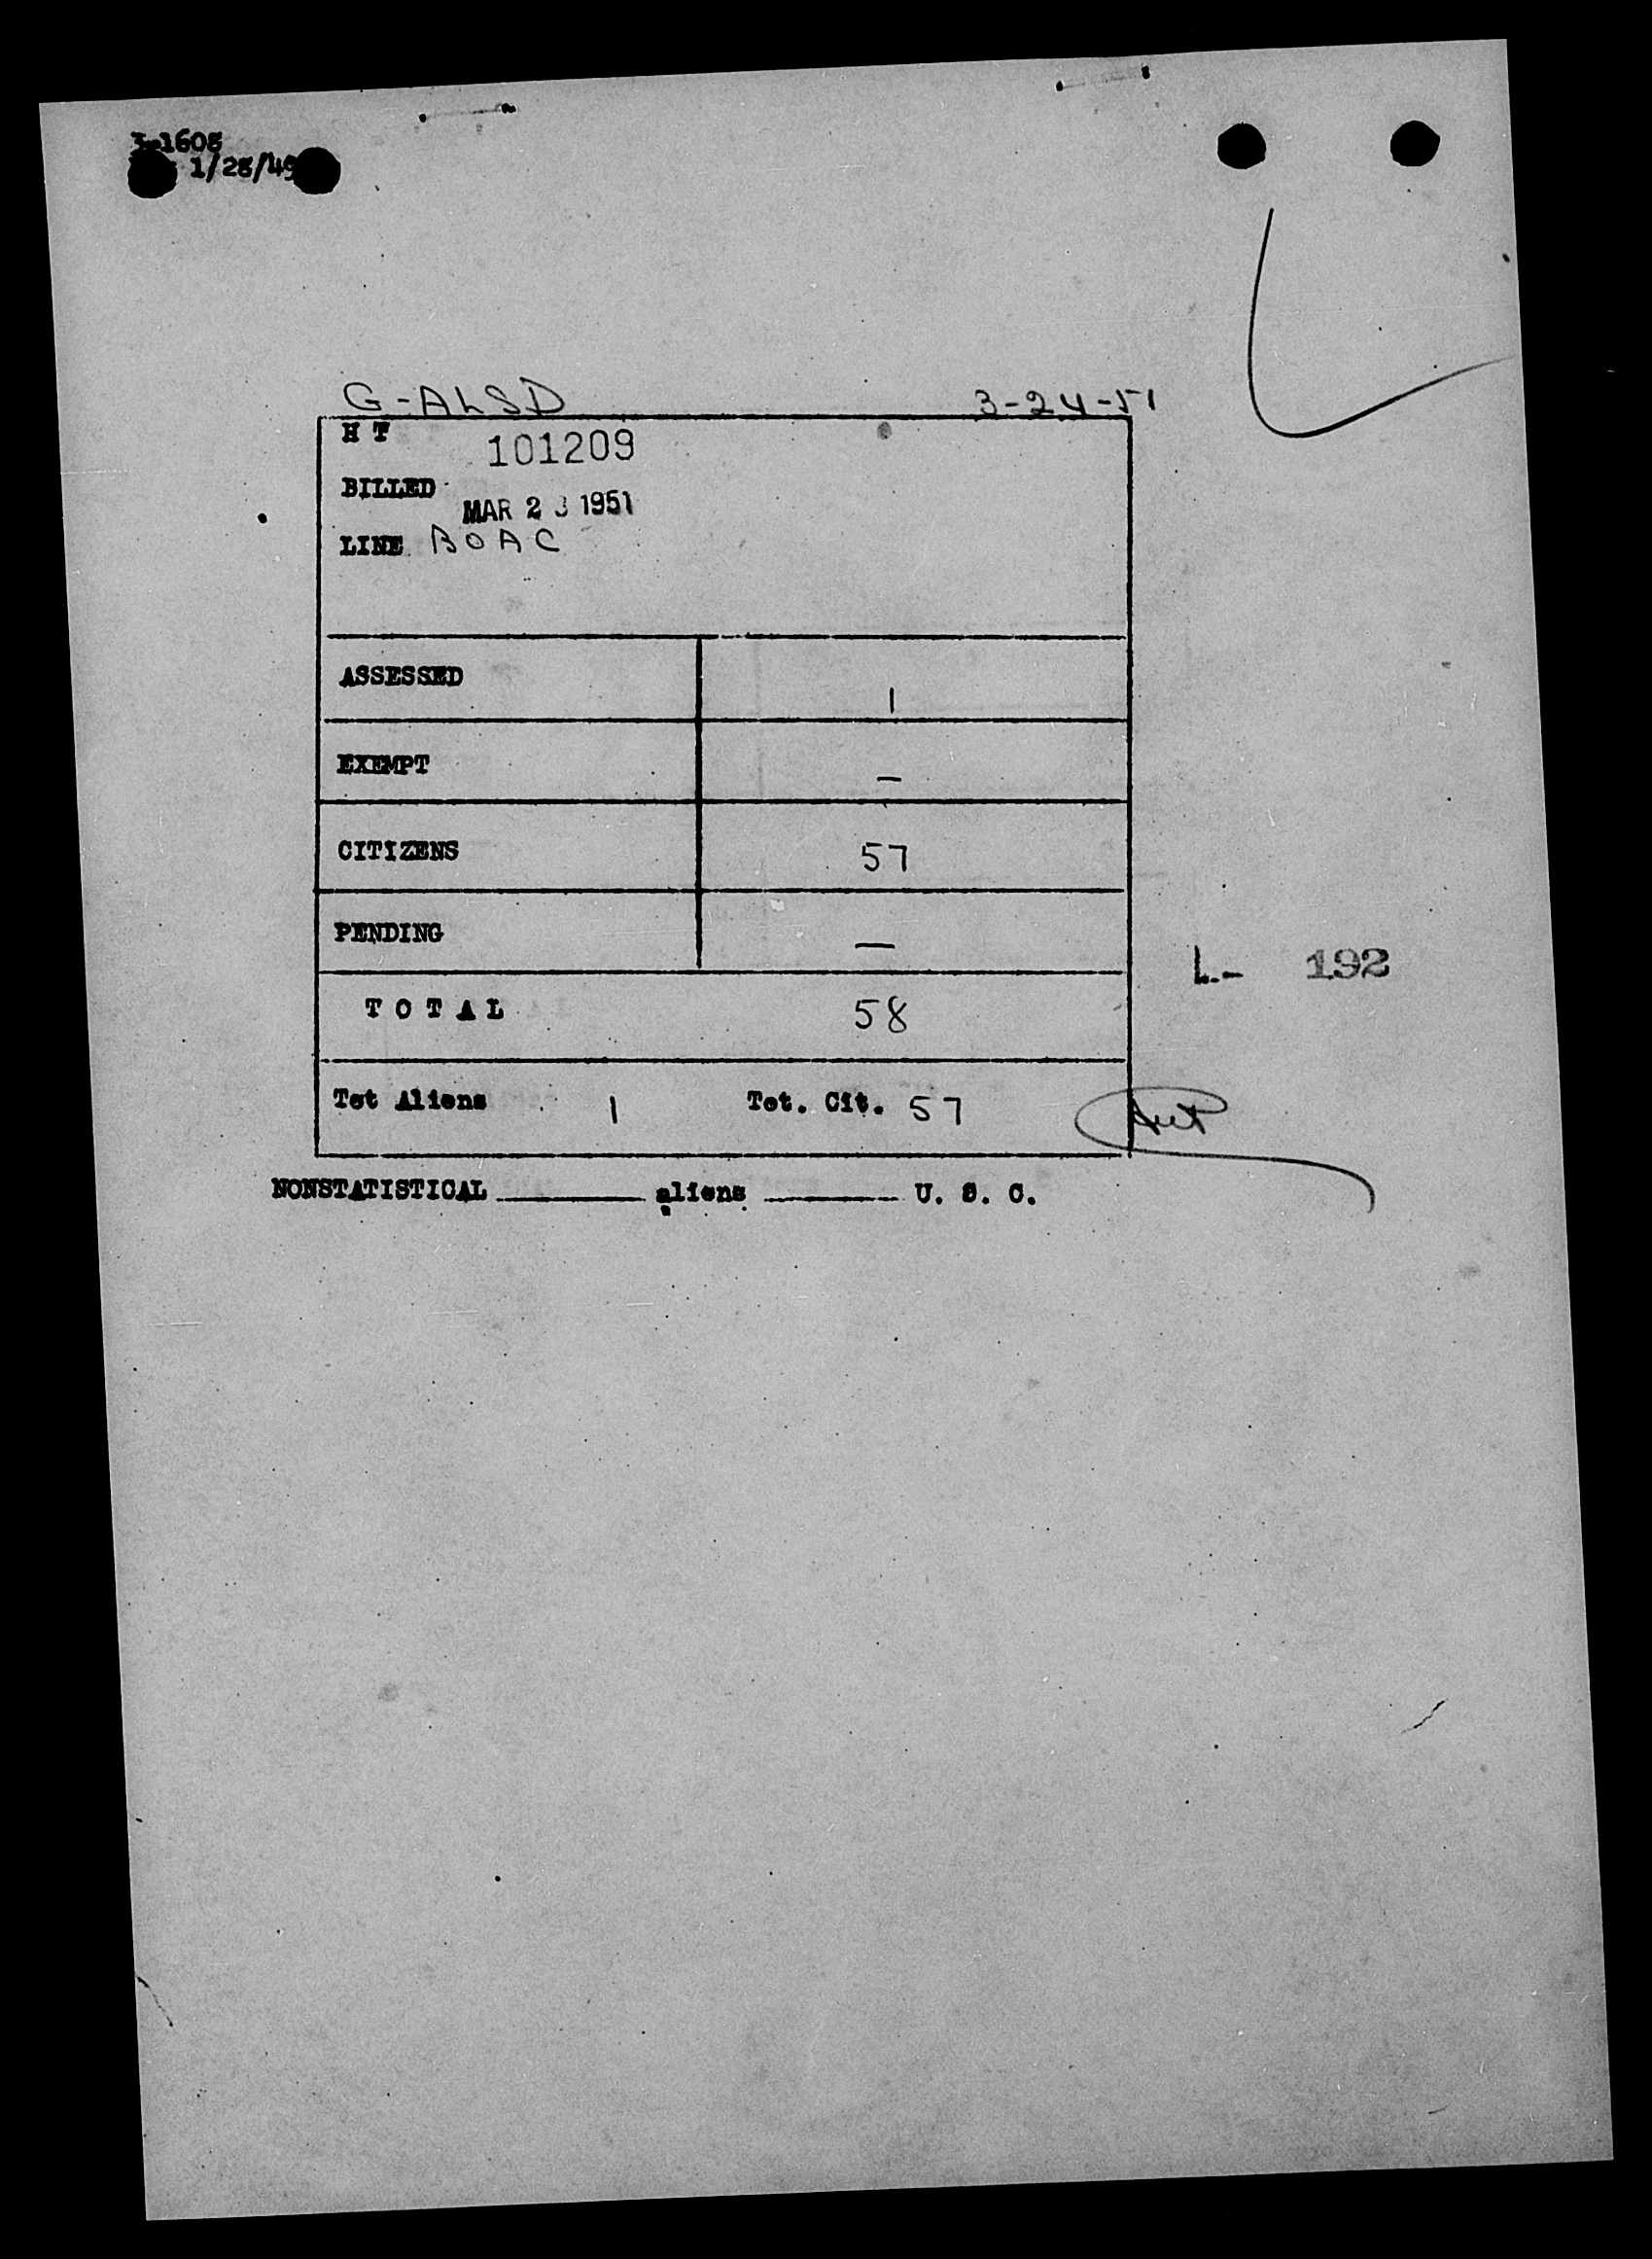 3-1608
1/28/49
G-ALSD 3-24-51
H T 101209
BILLED MAR 2 1951
LINE BOAC
ASSESSED 1
EXEMPT –
CITIZENS 57
PENDING —
TOTAL 58
L- 192
Tot Aliens 1 Tot. Cit. 57
NONSTATISTICAL ________ aliens ________ U. S. C.